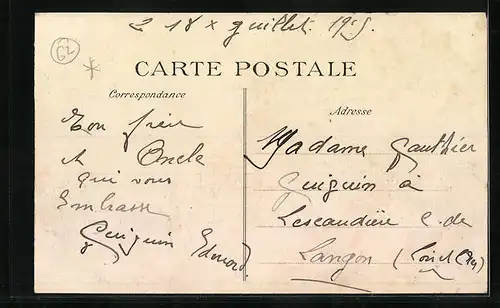 2 18 x Juillet 195
G2
CARTE POSTALE
Correspondance
Ton frère
et Oncle
qui vous
Embrasse
Guiguin Edouard
Adresse
Madame Gauthier
Guiguin à
Lescaudière C. de
Langon (Loir et Cher)